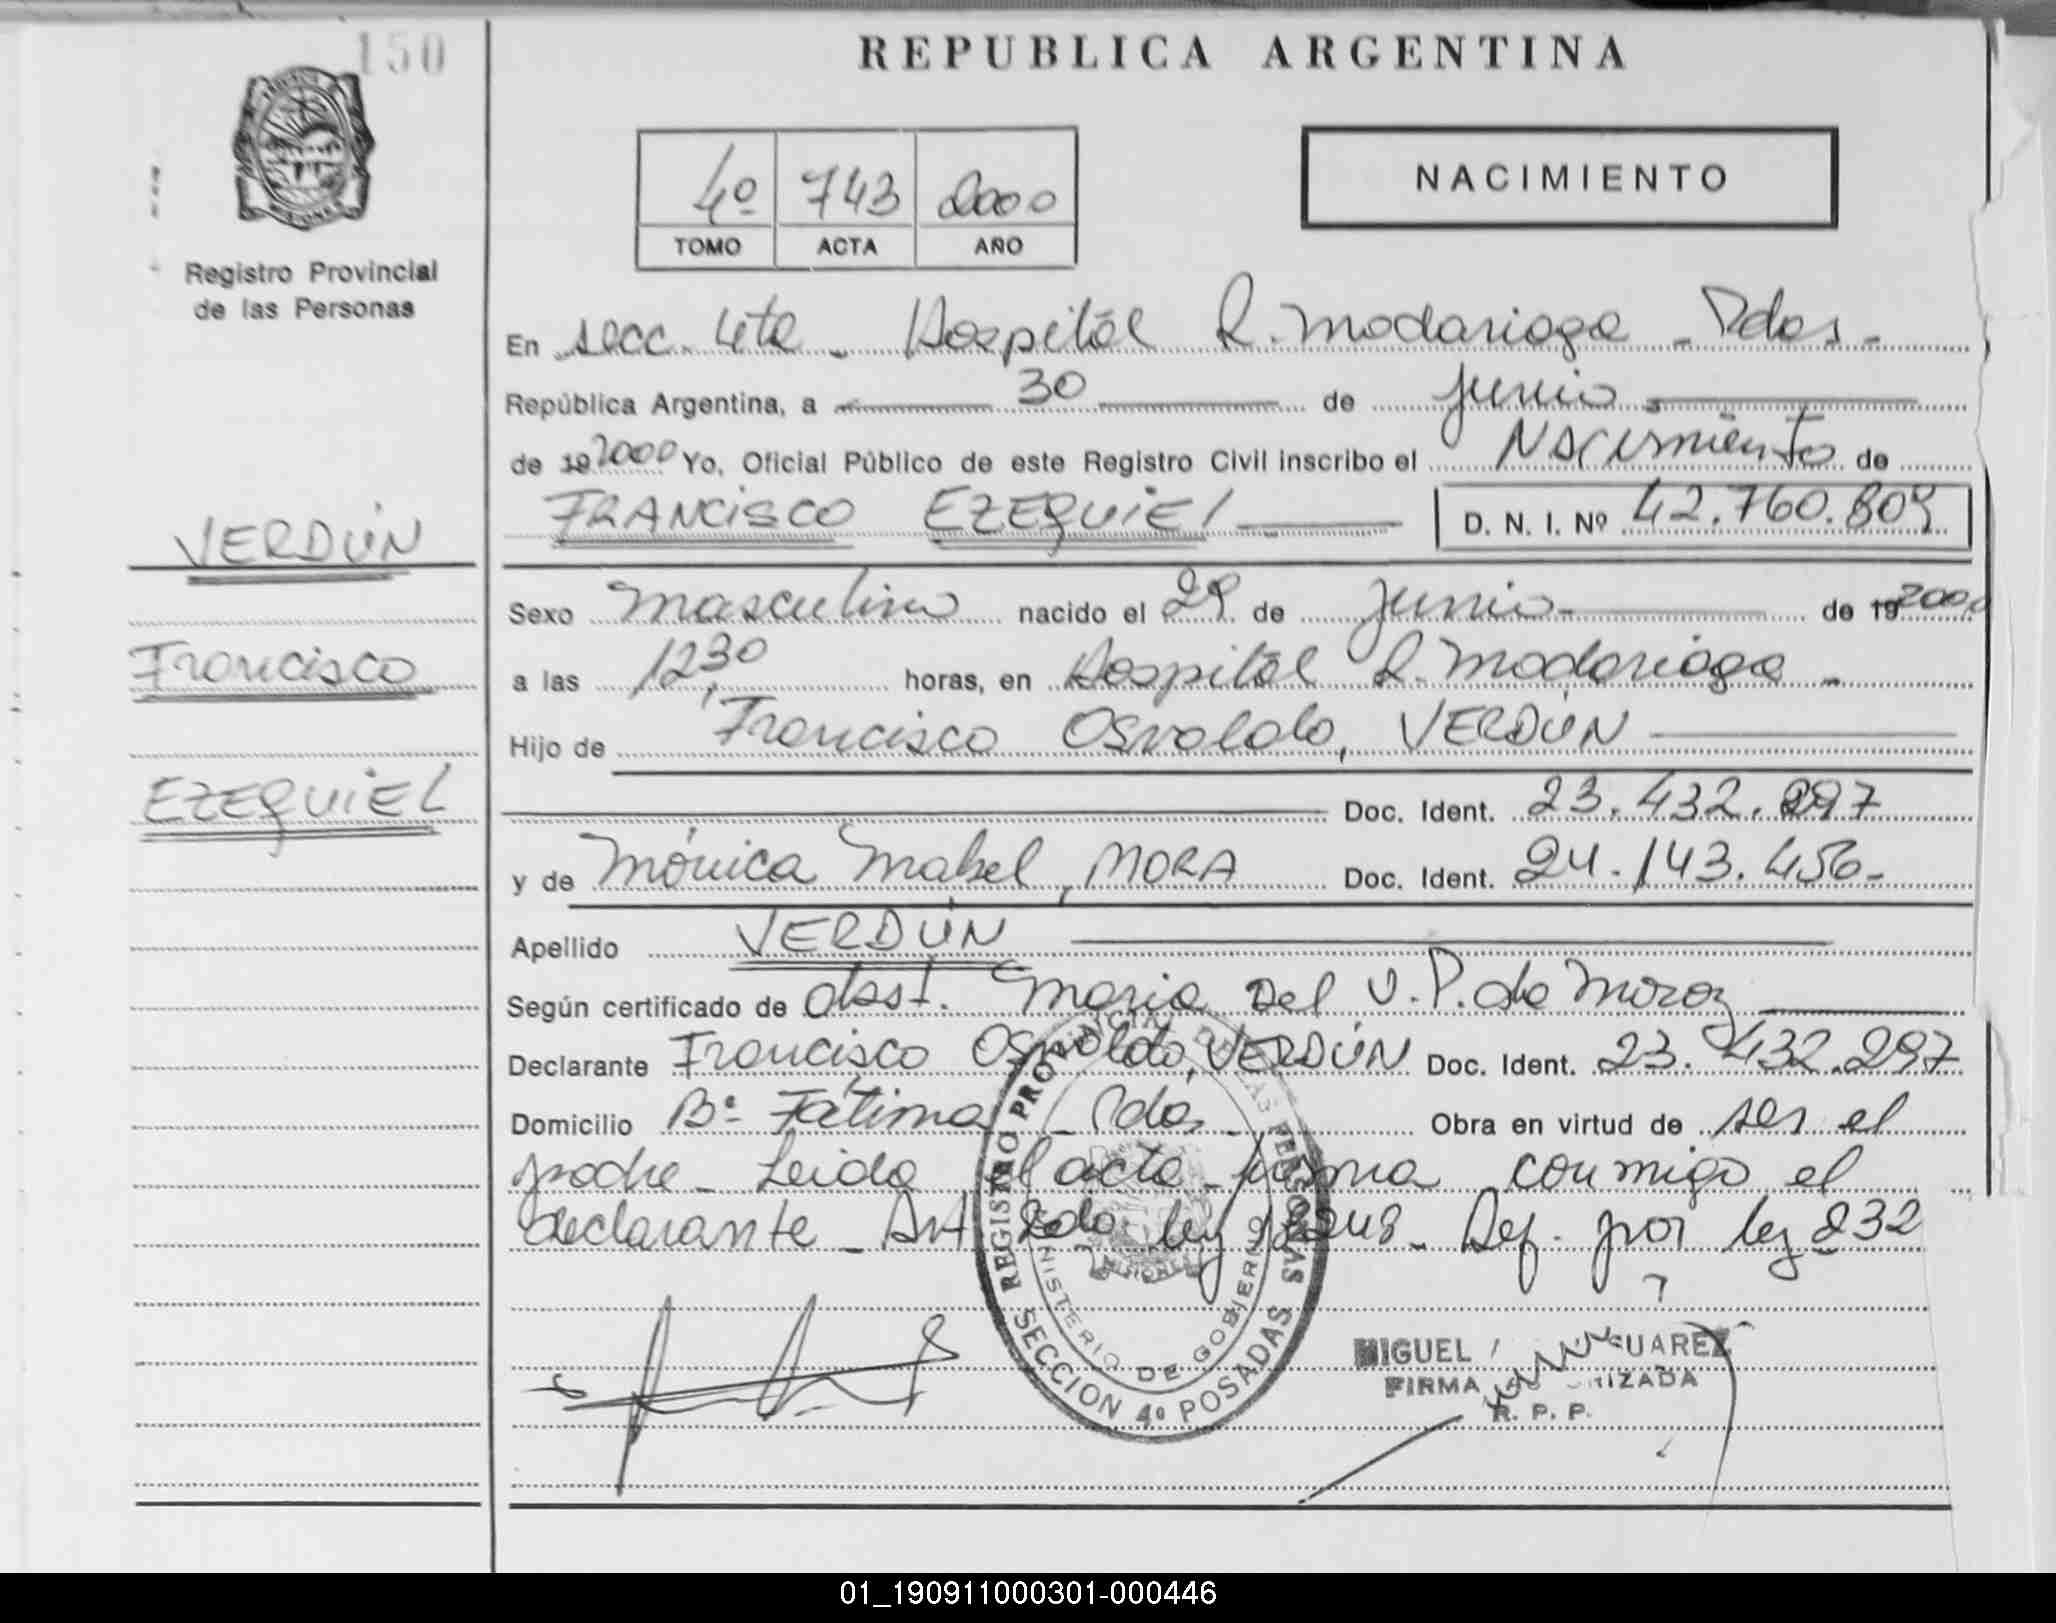 150
REPUBLICA ARGENTINA
4º 743 2000
TOMO ACTA AÑO
NACIMIENTO
Registro Provincial
de las Personas
En secc. 4ta - Hospital R. Madariaga - Pdas -
República Argentina, a 30 de junio
de 19 2000 Yo, Oficial Público de este Registro Civil inscribo el Nacimiento de
FRANCISCO EZEQUIEL D. N. I. Nº 42.760.809
VERDÚN
Francisco
EZEQUIEL
Sexo masculino nacido el 29 de junio de 19 2000
a las 12,30 horas, en Hospital R. Madariaga -
Hijo de Francisco Osvaldo, VERDÚN
Doc. Ident. 23.432.297
y de Mónica Mabel, MORA Doc. Ident. 24.143.456-
Apellido VERDÚN
Según certificado de obst. Maria Del V. P. de
Declarante Francisco Osvaldo, VERDÚN Doc. Ident. 23.432.297
Domicilio Bº Fátima - Pdas - Obra en virtud de ser el
padre - Leida el acta firma conmigo el
declarante - Art 2do ley 18248 - Def. por ley 232
REGISTRO PROVINCIAL DE LAS PERSONAS
MINISTERIO DE GOBIERNO
MISIONES
SECCION 4º POSADAS
MIGUEL SUAREZ
FIRMA AUTORIZADA
R. P. P.
01_190911000301-000446